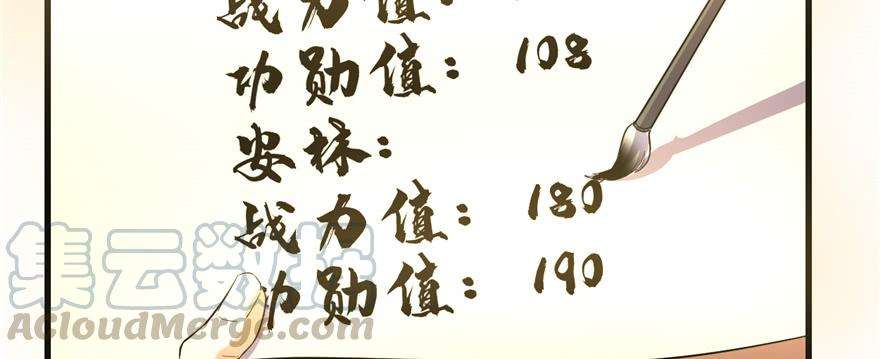 战力值：
功勋值：108
安林：
战力值：180
功勋值：190
集云数据
ACloudMerge.com